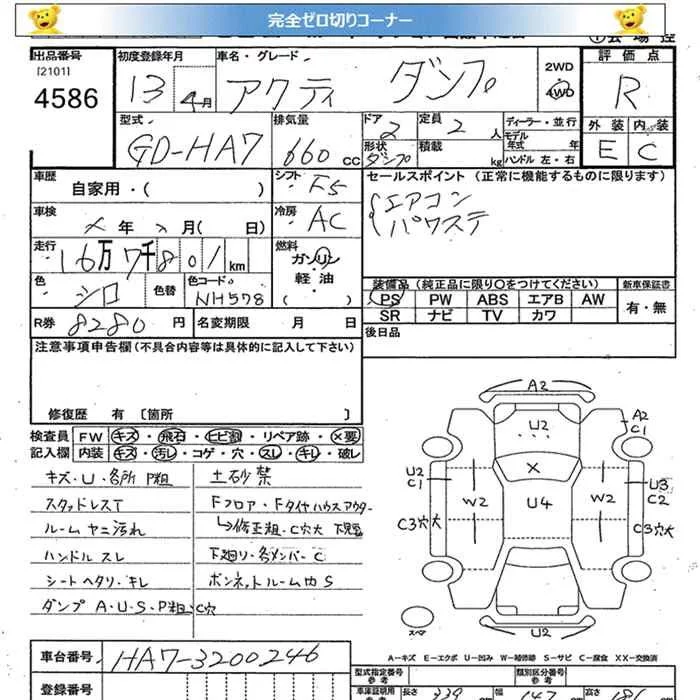 完全ゼロ切りコーナー
出品番号 初度登録年月 車名・グレード 2WD 評価点
[2101] 4586 13年 4月 アクティ ダンプ 4WD R
型式 排気量 ドア 2 定員 2 人 ディーラー・並行 外装 内装
GD-HA7 660 cc 形状 ダンプ 積載 kg モデル年式 年 E C
ハンドル 左・右
車歴 自家用・( ) シフト F5 セールスポイント (正常に機能するものに限ります)
車検 × 年 × 月( 日) 冷房 AC エアコン
パワステ
走行 16万7千801km 燃料 ガソリン
軽油
( )
色 シロ 色替 色コード NH578 装備品 (純正品に限り○をつけてください) 新車保証書
PS PW ABS エアB AW 有・無
SR ナビ TV カワ
R券 8280 円 名変期限 月 日 後日品
注意事項申告欄 (不具合内容等は具体的に記入して下さい)
修復歴 有 〔箇所 〕
検査員 FW キズ・飛石・ヒビ割・リペア跡・×要
記入欄 内装 キズ・汚レ・コゲ・穴・スレ・キレ・破レ
キズ・U・各所P粗 土砂禁
スタッドレスT Fフロア・Fタイヤハウスアウター
ルームヤニ汚れ →修正粗・C穴大
ハンドルスレ 下廻り・各メンバーC
シートヘタリ・キレ ボンネットルーム内S
ダンプA・U・S・P粗・C穴
A2
U2
A2
C1
×
U2
C1
U3
C2
W2
U4
W2
C3穴大
C3穴大
スペア
U2
A-キズ E-エクボ U-凹み W-補修跡 S-サビ C-腐食 XX-交換済
車台番号 HA7-3200246 型式指定番号 参考 類別区分番号 参考
登録番号 車庫証明用 参考 長さ 339 幅 147 高さ 181